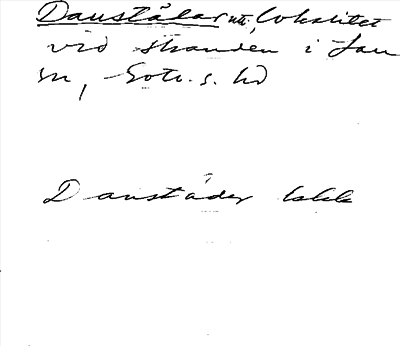 Danstälar utt, lokalitet
vid stranden i Lau
sn, Gotl. s. hd
Danstäder lokk